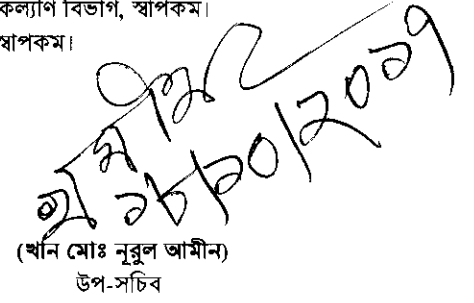 কল্যাণ বিভাগ, স্বাপকম।
স্বাপকম।
১৮/১০/২০১৭
(খান মোঃ নূরুল আমীন)
উপ-সচিব